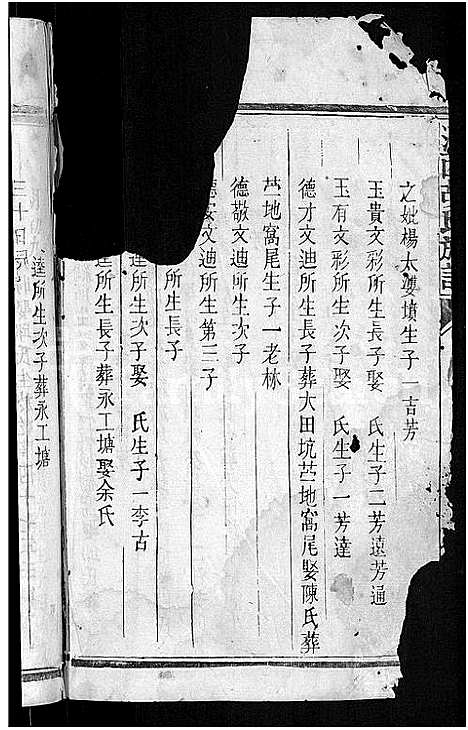 之妣楊太孺墳生子一吉芳
玉貴文彩所生長子娶 氏生子二芳遠芳通
玉有文彩所生次子娶 氏生子一芳達
德才文迪所生長子葬大田坑苎地窩尾娶陳氏葬
苎地窩尾生子一老林
德敬文迪所生次子
文迪所生第三子
所生長子
所生次子娶 氏生子一李古
達所生長子葬永工塘娶余氏
達所生次子葬永工塘
三十四